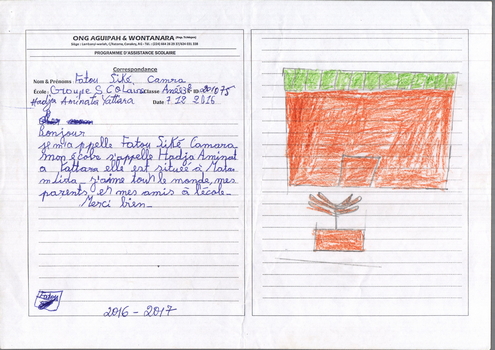 ONG AGUIPAH & WONTANARA
PROGRAMME D'ASSISTANCE SCOLAIRE
Correspondance
Nom & Prénoms Fatou Siké Camra
École: Groupe S COLaire Classe
Hadja Aminata Yattara Date 7 12 2016
Bonjour
je m'appelle Fatou Siké Camara
mon école s'appelle Hadja Aminat
a Yattara elle est située à Mata
m Lida j'aime tout le monde, mes
parents et mes amis à l'école_
Merci bien_
Fatou
2016 - 2017